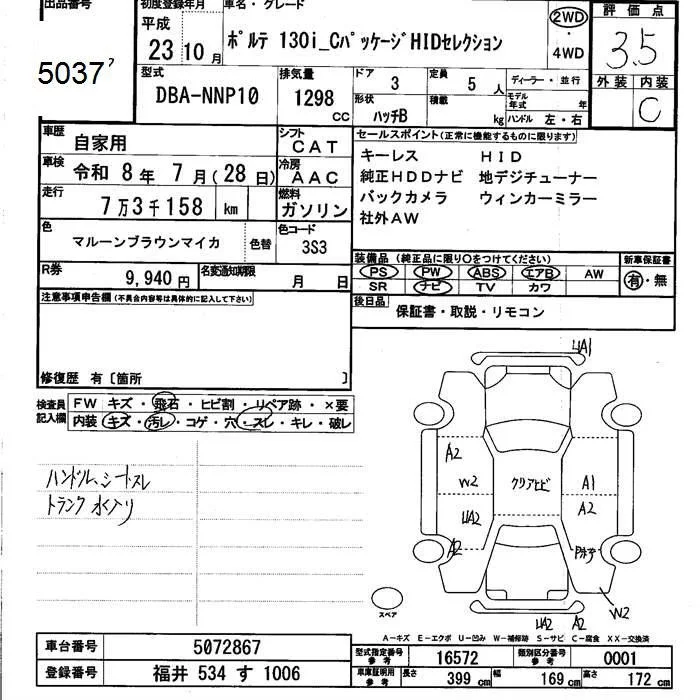 出品番号
5037
初度登録年月
平成
23 10 月
車名・グレード
ポルテ 130i_CパッケージHIDセレクション
2WD
・
4WD
評価点
3.5
外装 内装
C
型式
DBA-NNP10
排気量
1298 CC
ドア 3
形状 ハッチB
定員 5 人
積載 kg
ディーラー・並行
モデル年式 年
ハンドル 左・右
車歴 自家用
シフト CAT
車検 令和 8 年 7 月 (28 日)
冷房 AAC
走行 7万3千158 km
燃料 ガソリン
色 マルーンブラウンマイカ 色替
色コード 3S3
R券 9,940 円
名変通知期限 月 日
セールスポイント(正常に機能するものに限ります)
キーレス HID
純正HDDナビ 地デジチューナー
バックカメラ ウィンカーミラー
社外AW
装備品 (純正品に限り○をつけてください)
新車保証書
PS PW ABS エアB AW
有・無
SR ナビ TV カワ
後日品 保証書・取説・リモコン
注意事項申告欄(不具合内容等は具体的に記入して下さい)
修復歴 有〔箇所 〕
検査員記入欄
FW キズ・飛石・ヒビ割・リペア跡・×要
内装 キズ・汚レ・コゲ・穴・スレ・キレ・破レ
ハンドル、シートスレ
トランク 水入り
UA1
A2
W2
UA2
A2
クリアヒビ
A1
A2
W2
UA2 A2
スペア
A-キズ E-エクボ U-凹み W-補修跡 S-サビ C-腐食 XX-交換済
車台番号 5072867
登録番号 福井 534 す 1006
型式指定番号 参考 16572
類別区分番号 参考 0001
車庫証明用 参考 長さ 399 cm 幅 169 cm 高さ 172 cm